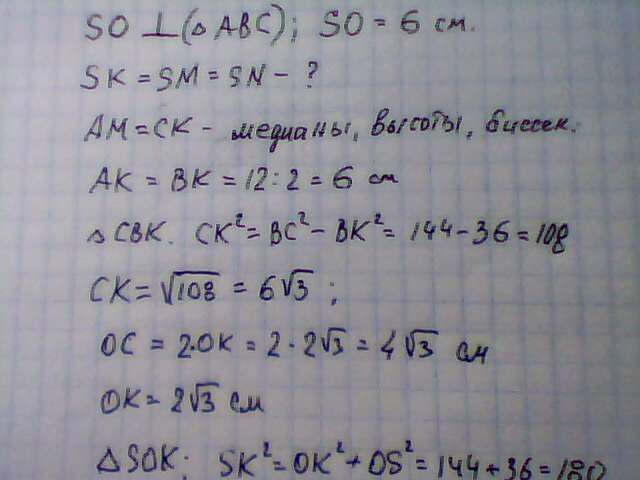 SO ⊥ (△ ABC); SO = 6 см.
SK = SM = SN - ?
AM = CK - медианы, высоты, биссек.
AK = BK = 12 : 2 = 6 см
△ CBK. CK² = BC² - BK² = 144 - 36 = 108
CK = √108 = 6√3 ;
OC = 2·OK = 2 · 2√3 = 4√3 см
OK = 2√3 см
△SOK; SK² = OK² + OS² = 144 + 36 = 180